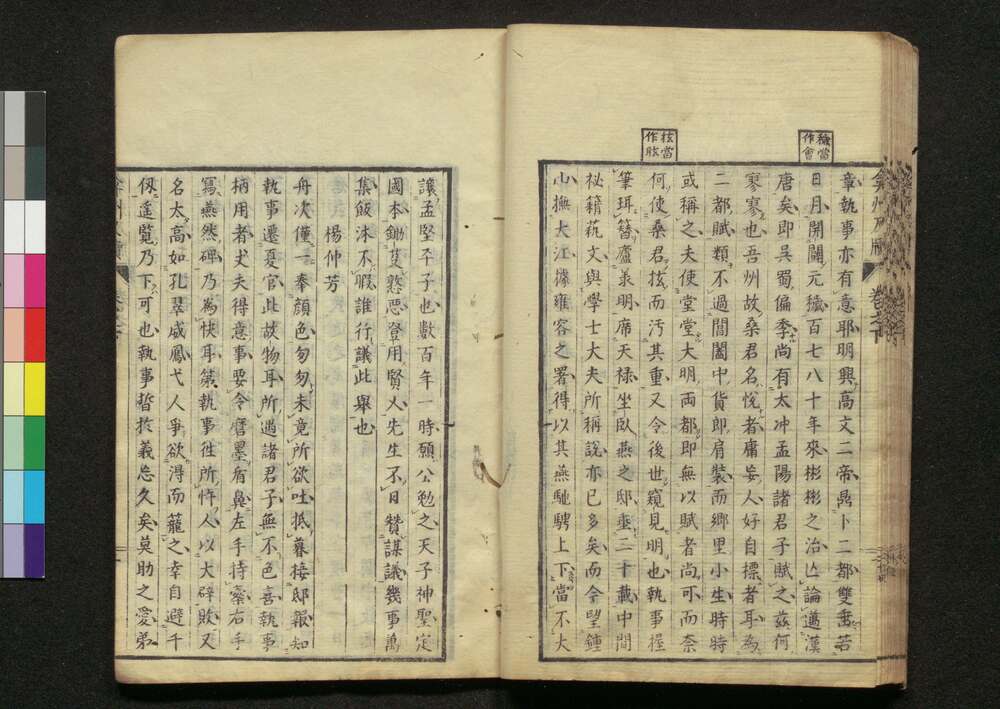 穢當作會
核當作肱
章執事亦有意耶明興高文二帝爲卜二都雙垂若
日月開闢元穢百七八十年來彬彬之治亡論邁漢
唐矣即吳蜀偏季尚有太冲孟陽諸君子賦之兹何
寥寥也吾州故桑君名悅者庸妄人好自標者耳爲
二都賦類不過闤闠中貨郎肩裝而鄉里小生時時
或稱之夫使堂堂大明兩都即無以賦者尚可而奈
何使桑君核而汚其重又令後世窺見明也執事握
筆珥簪廬承明席天祿坐臥燕之邸垂二十載中間
秘籍蓺文與學士大夫所稱說亦已多矣而今望鍾
山撫大江據雍容之署得以其燕馳騁上下當不大
讓孟堅平子也數百年一時願公勉之天子神聖定
國本鋤芟憝惡登用賢人先生不日贊謀議幾事萬
集飯沐不暇誰行議此舉也
楊仲芳
舟次僅一奉顏色匆匆未竟所欲吐抵暮接邸報知
執事遷憂官此故物耳所遇諸君子無不色喜執事
柄用者犬夫得意事要令磨墨盾鼻左手持槖右手
寫燕然碑乃爲快耳第執事徃所忤人以大辟敗又
名太高如孔翠威鳳弋人爭欲得而籠之幸自避千
仭遙覽乃下可也執事晢於義忘久矣莫助之愛弟